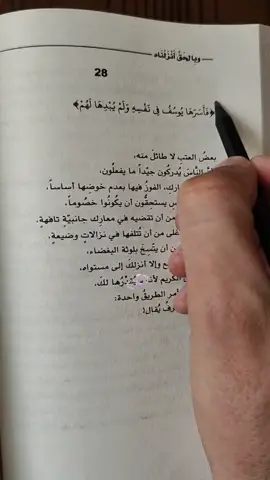 وبالحق أنزلناه
28
﴿فَأَسَرَّهَا يُوسُفُ فِي نَفْسِهِ وَلَمْ يُبْدِهَا لَهُمْ﴾
بعضُ العتبِ لا طائلَ منه،
النَّاسَ يُدركون جيّداً ما يفعلُون،
الفوزُ فيها بعدمِ خوضِها أساساً.
يستحقُّون أن يكُونُوا خصُوماً،
من أن تقضيه في معارك جانبيَّةٍ تافهةٍ،
من أن تُتلفها في نزالاتٍ وضيعةٍ،
أن يتَّسِخَ بلوثةِ البغضاء،
وإلا أنزلكَ إلى مستواه،
الكريم
لكَ،
الطريقُ واحدة:
يُقال!